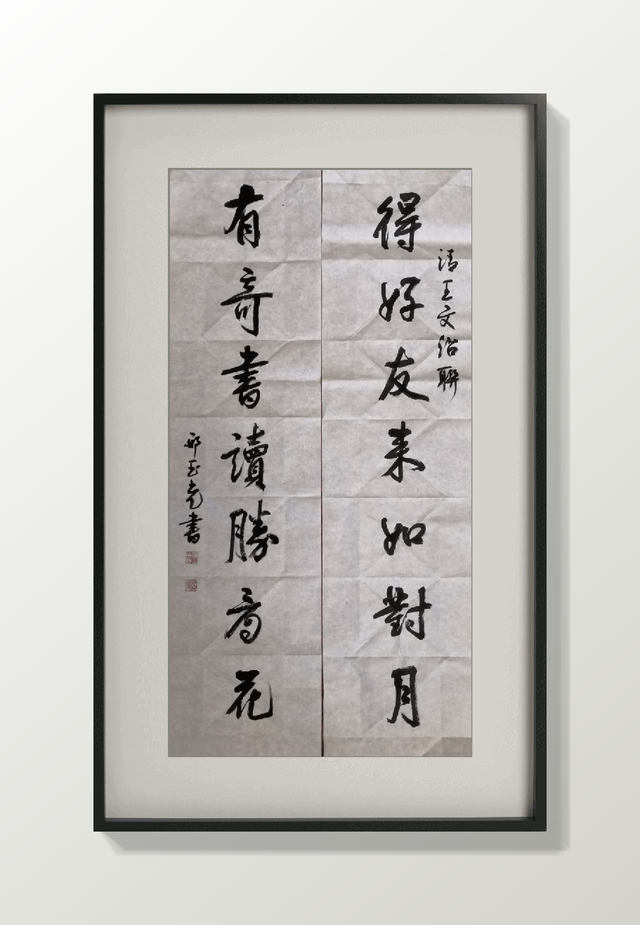 清王文治聯
得好友来如對月
有奇書讀勝看花
邢玉書